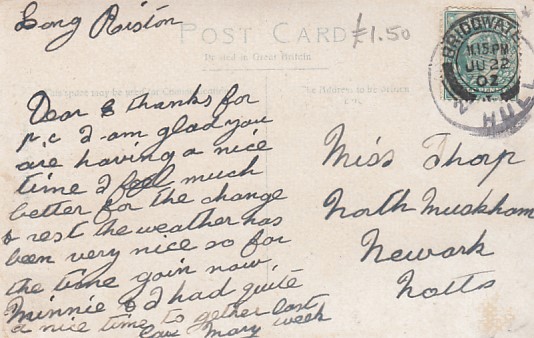 Long Riston
£1.50
POST CARD
Printed in Great Britain
This space may be used for Correspondence
The Address to be Written
BRIDGWATER
11.15 PM
JU 22
07
HULL
Dear S thanks for
p.c I am glad you
are having a nice
time I feel much
better for the change
& rest the weather has
been very nice so far
the time goin now
Minnie & I had quite
a nice time to gether last
week
Mary
Miss Thorp
North Muskham
Newark
Notts